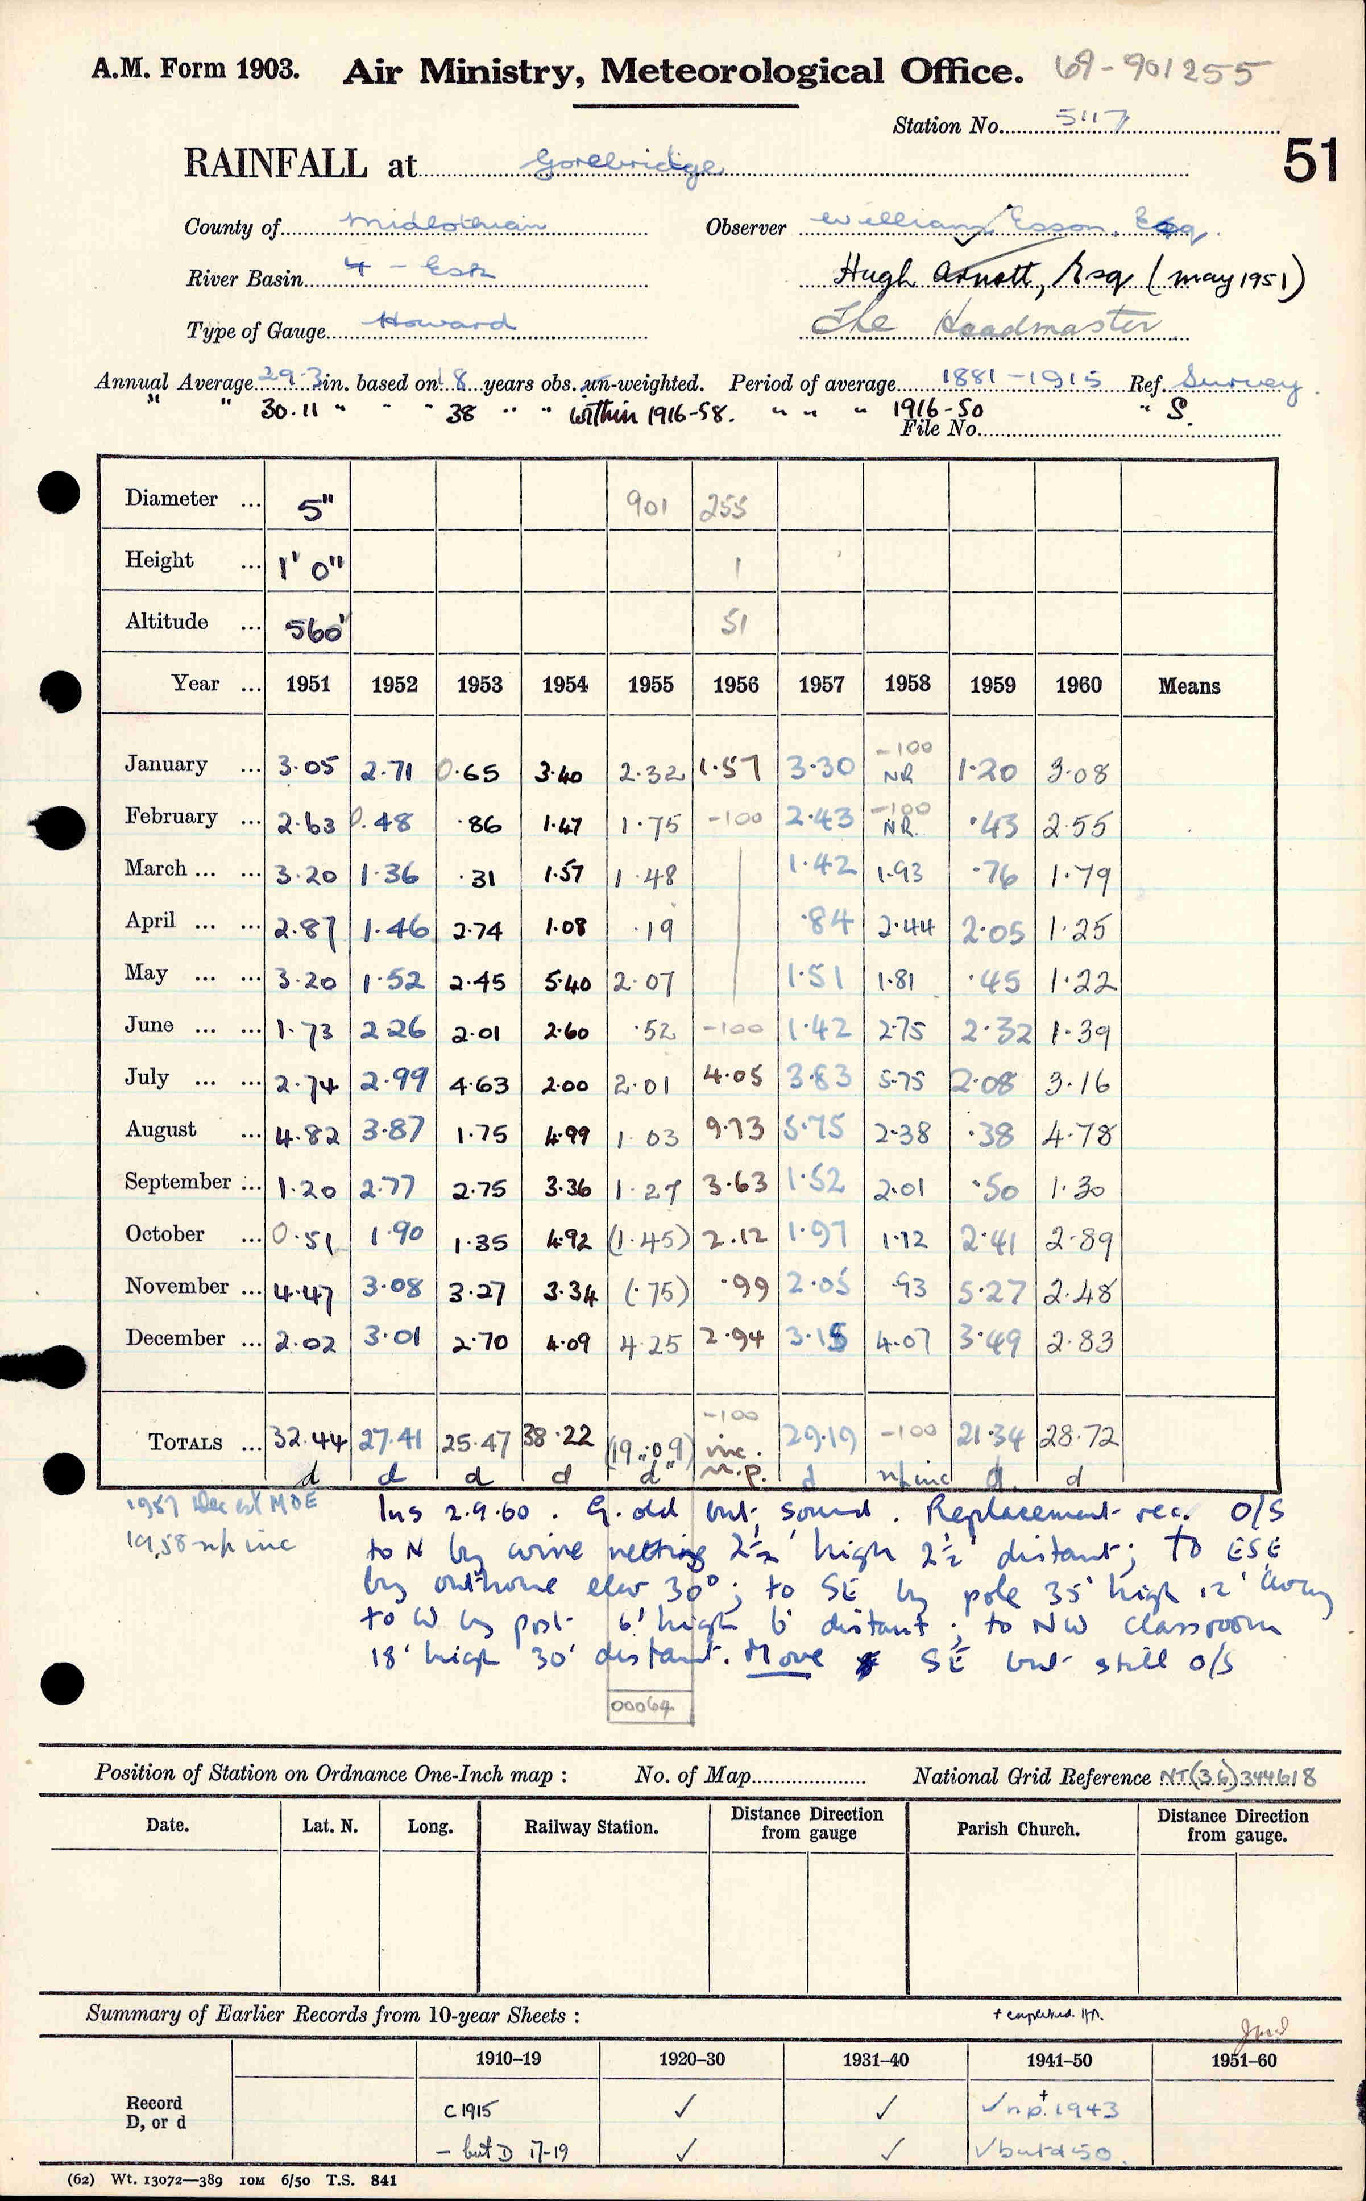 A.M. Form 1903. Air Ministry, Meteorological Office. 69-901255
Station No. 5117
51
RAINFALL at Gorebridge
County of Midlothian Observer William Esson, Esq.
River Basin 4 - Esk Hugh Arnott, Esq (May 1951)
Type of Gauge Howard The Headmaster
Annual Average 29.3 in. based on 18 years obs. un-weighted. Period of average 1881-1915 Ref. Survey.
" " 30.11 " " " 38 " " within 1916-58. " " " 1916-50 " S.
File No.
Diameter ... 5" 901 255
Height ... 1' 0" 1
Altitude ... 560' 51
Year ... 1951 1952 1953 1954 1955 1956 1957 1958 1959 1960 Means
January ... 3.05 2.71 0.65 3.40 2.32 1.57 3.30 -100 NR 1.20 3.08
February ... 2.63 0.48 .86 1.47 1.75 -100 2.43 -100 NR. .43 2.55
March ... ... 3.20 1.36 .31 1.57 1.48 1.42 1.93 .76 1.79
April ... ... 2.87 1.46 2.74 1.08 .19 .84 2.44 2.05 1.25
May ... ... 3.20 1.52 2.45 5.40 2.07 1.51 1.81 .45 1.22
June ... ... 1.73 2.26 2.01 2.60 .52 -100 1.42 2.75 2.32 1.39
July ... ... 2.74 2.99 4.63 2.00 2.01 4.05 3.83 5.75 2.08 3.16
August ... 4.82 3.87 1.75 4.99 1.03 9.73 5.75 2.38 .38 4.78
September ... 1.20 2.77 2.75 3.36 1.27 3.63 1.52 2.01 .50 1.30
October ... 0.51 1.90 1.35 4.92 (1.45) 2.12 1.97 1.12 2.41 2.89
November ... 4.47 3.08 3.27 3.34 (.75) .99 2.05 .93 5.27 2.48
December ... 2.02 3.01 2.70 4.09 4.25 2.94 3.15 4.07 3.49 2.83
-100
TOTALS ... 32.44 27.41 25.47 38.22 (19.09) inc. 29.19 -100 21.34 28.72
d d d d d n.p. d n/p inc d d
1957 Dec est MOE
1958 n/p inc
Ins 2.9.60. G. old but sound. Replacement rec. O/S
to N by wire netting 2½' high 2½' distant; to ESE
by outhouse elev 30°; to SE by pole 35' high 12' away
to W by post 6' high 6' distant; to NW classroom
18' high 30' distant. Move SE but still O/S
00064
Position of Station on Ordnance One-Inch map : No. of Map National Grid Reference NT(36)344618
Date. Lat. N. Long. Railway Station. Distance Direction from gauge Parish Church. Distance Direction from gauge.
Summary of Earlier Records from 10-year Sheets :
1910–19 1920–30 1931–40 1941–50 1951–60
Record D, or d c1915 ✓ ✓ ✓ n.p.† 1943
- but D 17-19 ✓ ✓ ✓ but d 50.
(62) Wt. 13072—389 10M 6/50 T.S. 841